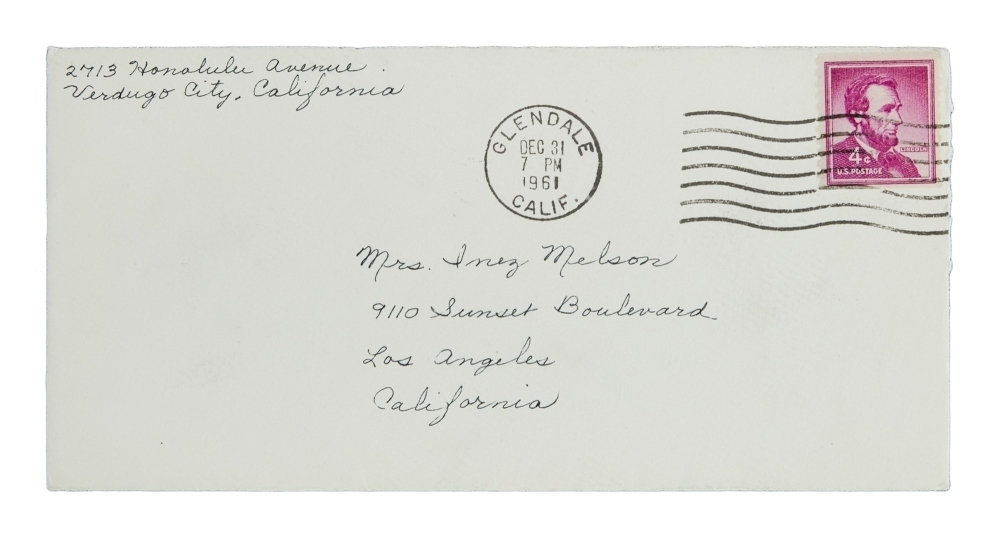 2713 Honolulu Avenue.
Verdugo City, California
GLENDALE
DEC 31
7 PM
1961
CALIF.
LINCOLN
4¢
U.S. POSTAGE
Mrs. Inez Melson
9110 Sunset Boulevard
Los Angeles
California